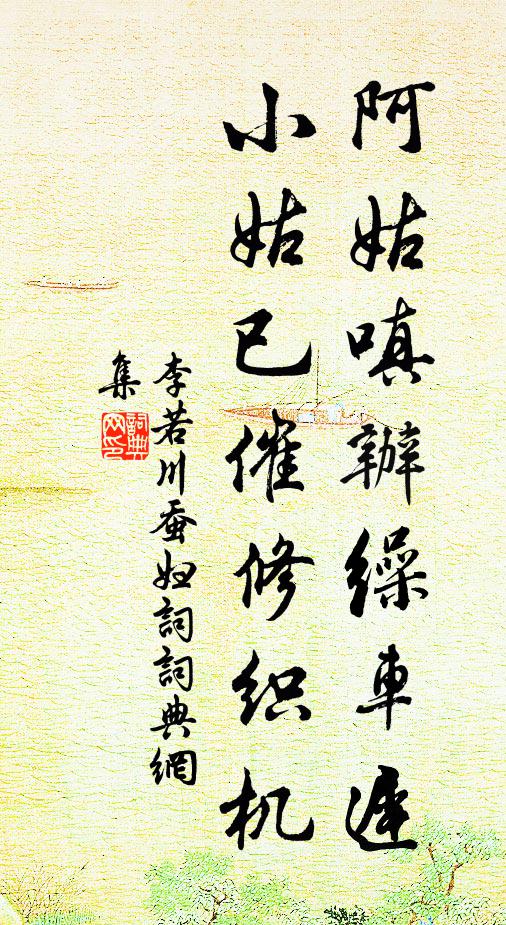 阿姑嗔辦繅車遲
小姑已催修织机
李若川蚕妇詞詞典網
集
詞典網印